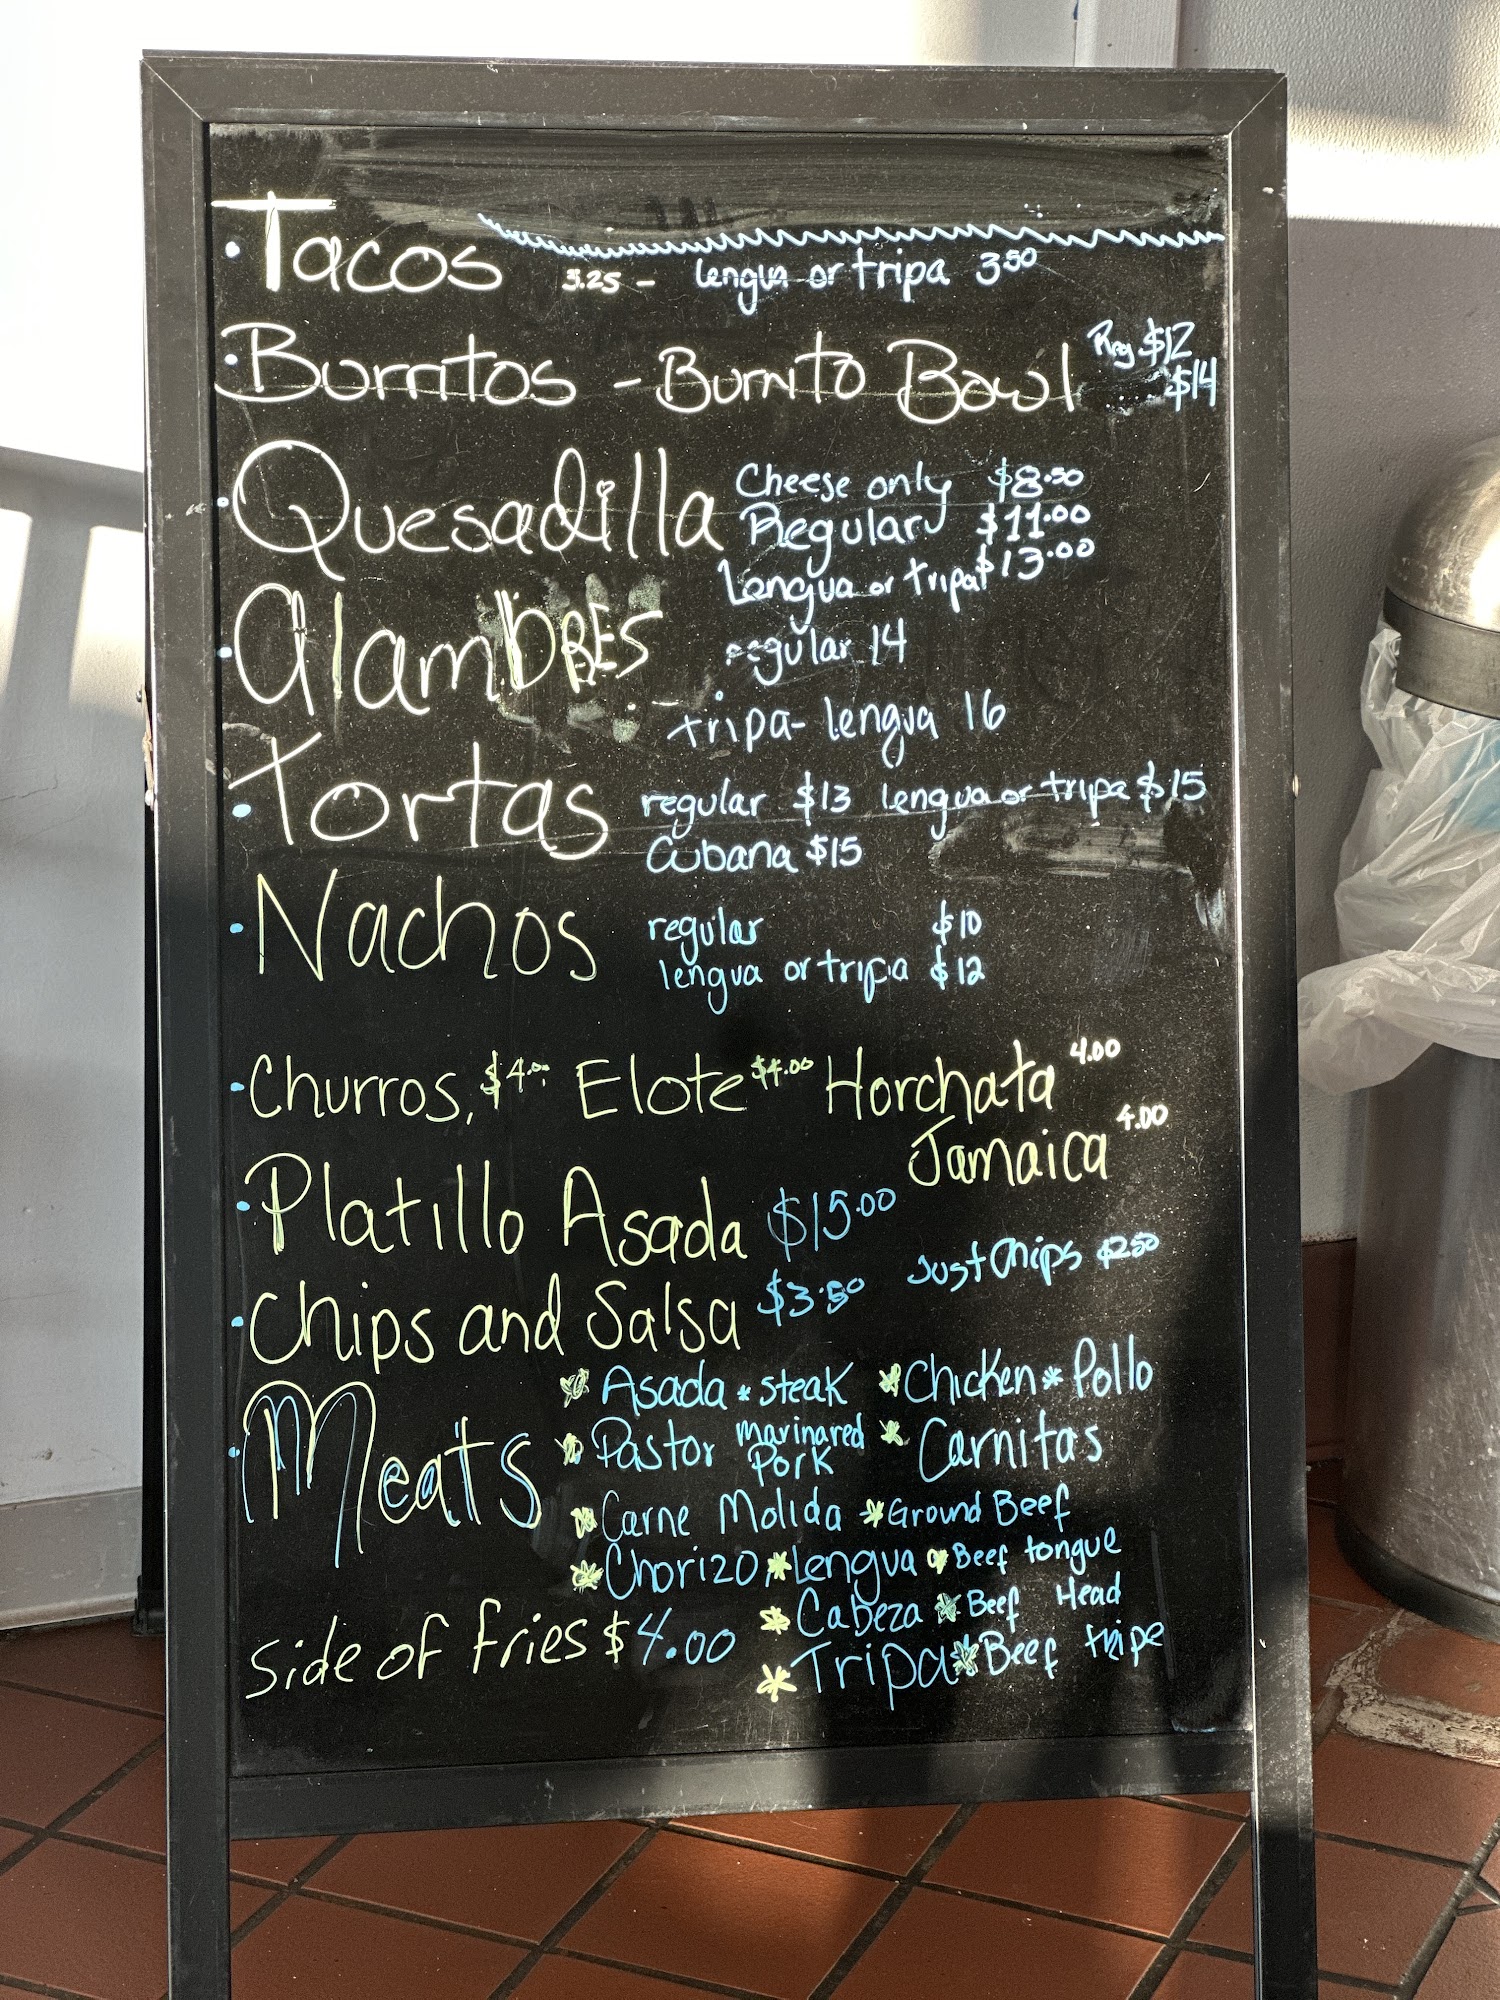 Tacos 3.25 - lengua or tripa 3.50
Burritos - Burrito Bowl Reg $12
$14
Quesadilla Cheese only $8.50
Regular $11.00
Lengua or tripa $13.00
AlambRES regular 14
tripa- lengua 16
Tortas regular $13 lengua or tripa $15
Cubana $15
Nachos regular $10
lengua or tripa $12
Churros, $4.00 Elote $4.00 Horchata 4.00
Jamaica 4.00
Platillo Asada $15.00
Chips and Salsa $3.50 Just Chips $2.50
Meats * Asada * steak * Chicken * Pollo
* Pastor Marinared Pork * Carnitas
* Carne Molida * Ground Beef
* Chorizo * Lengua * Beef tongue
* Cabeza * Beef Head
Side of fries $4.00
* Tripa * Beef tripe